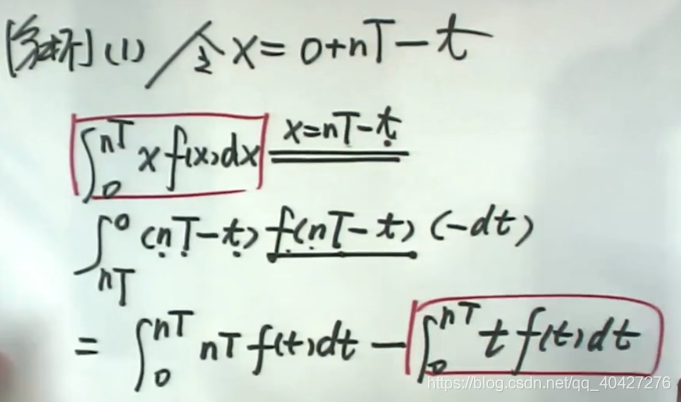 [解析] (1) / 令 x = 0+nT-t
∫₀ⁿᵀ x f(x)dx x=nT-t
∫ₙᴛ⁰ (nT-t) f(nT-t) (-dt)
= ∫₀ⁿᵀ nT f(t)dt - ∫₀ⁿᵀ t f(t) dt
https://blog.csdn.net/qq_40427276